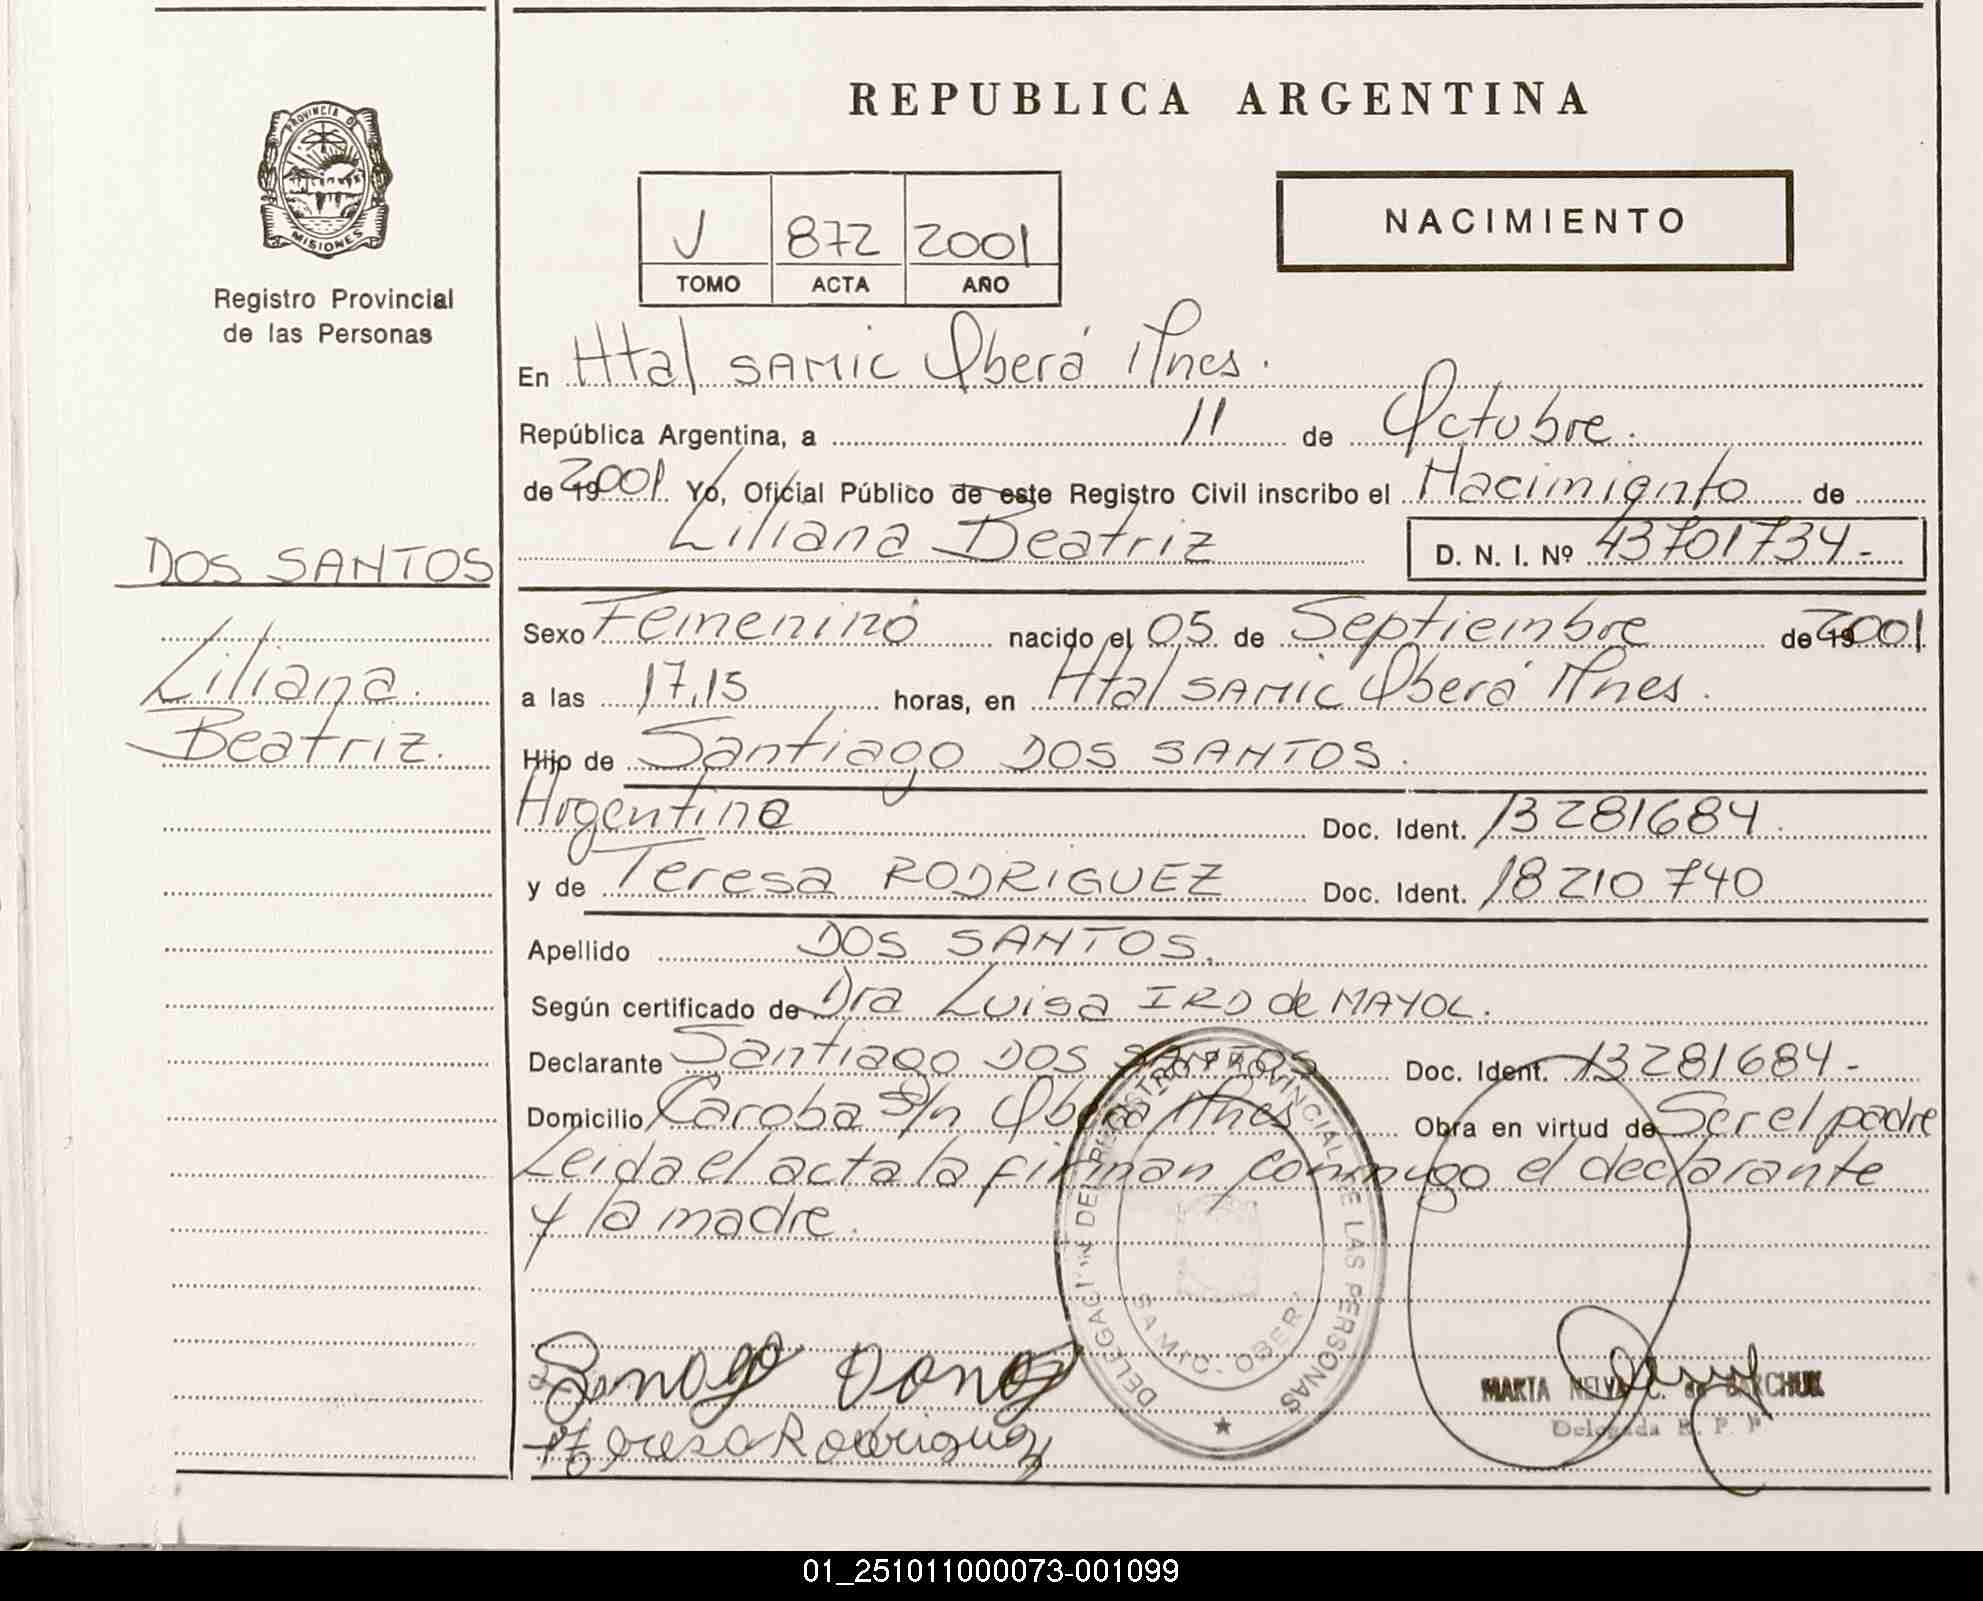 PROVINCIA D
MISIONES
Registro Provincial
de las Personas
DOS SANTOS
Liliana
Beatriz.
REPUBLICA ARGENTINA
V 872 2001
TOMO ACTA AÑO
NACIMIENTO
En Htal SAMIC Oberá Mnes.
República Argentina, a 11 de Octubre.
de 192001. Yo, Oficial Público de este Registro Civil inscribo el Nacimiento de
Liliana Beatriz D. N. I. Nº 43701734-
Sexo Femenino nacido el 05 de Septiembre de 192001
a las 17,15 horas, en Htal SAMIC Oberá Mnes.
Hijo de Santiago DOS SANTOS.
Argentina Doc. Ident. 13281684.
y de Teresa RODRIGUEZ Doc. Ident. 18210740
Apellido DOS SANTOS.
Según certificado de Dra Luisa IRD de MAYOL.
Declarante Santiago DOS SANTOS Doc. Ident. 13281684-
Domicilio Caroba S/n Oberá Mnes Obra en virtud de Ser el padre
Leida el acta la firman conmigo el declarante
y la madre.
DELEGACION DEL REGISTRO PROVINCIAL DE LAS PERSONAS
SAMIC - OBERA
MARTA NELVA C. de
Delegada R. P. P.
Teresa Rodriguez
01_251011000073-001099